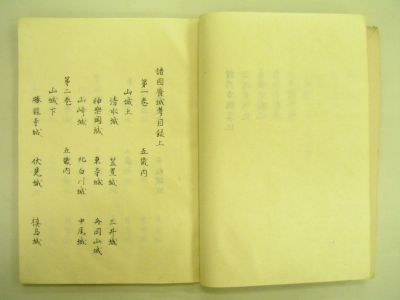 諸國廢城考目録上
第一巻 五畿内
山城上
清水城 笠置城 三井城
神樂岡城 東寺城 舟岡山城
山崎城 北白川城 中尾城
第二巻 五畿内
山城下
勝龍寺城 伏見城 槙島城